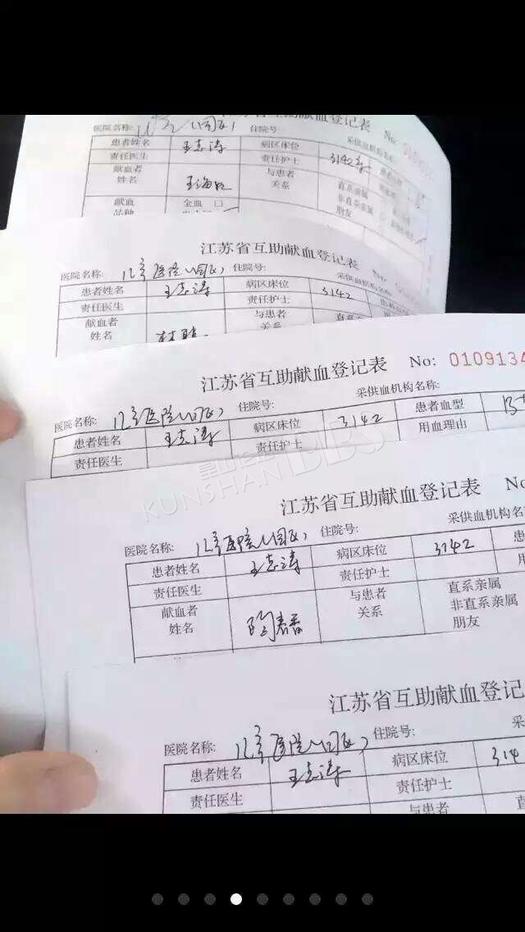 江苏省互助献血登记表 No:
医院名称: 住院号: 采供血机构名称:
患者姓名 王志涛 病区床位 3142
责任医生 责任护士
献血者 与患者 直系亲属
姓名 关系 非直系亲属
朋友
献血 全血 □
品种
江苏省互助献血登记表
医院名称: 儿童医院(园区) 住院号: 采供血机构名称
患者姓名 王志涛 病区床位 3142
责任医生 责任护士
献血者 与患者 直系亲属
姓名 关系
江苏省互助献血登记表 No: 0109134
医院名称: 儿童医院(园区) 住院号: 采供血机构名称:
患者姓名 王志涛 病区床位 3142 患者血型 B
责任医生 责任护士 用血理由
KUNSHAN BBS
江苏省互助献血登记表 No
医院名称: 儿童医院(园区) 住院号: 采供血机构名
患者姓名 王志涛 病区床位 3142 患
责任医生 责任护士 用
献血者 与患者 直系亲属
姓名 关系 非直系亲属
朋友
江苏省互助献血登记
医院名称: 儿童医院(园区) 住院号: 采供
患者姓名 王志涛 病区床位 314
责任医生 责任护士
与患者 直